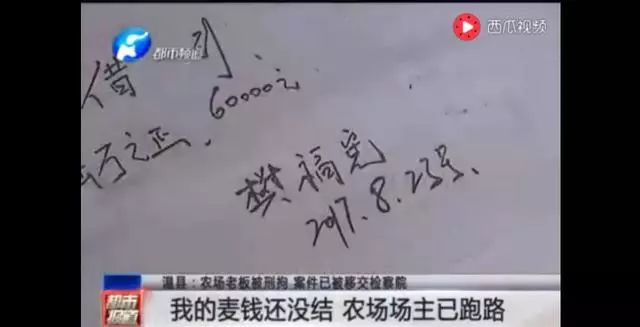 都市频道
西瓜视频
借到
60000元
万元正.
樊福宪
2017.8.23号.
温县:农场老板被刑拘 案件已被移交检察院
都市报道
我的麦钱还没结 农场场主已跑路